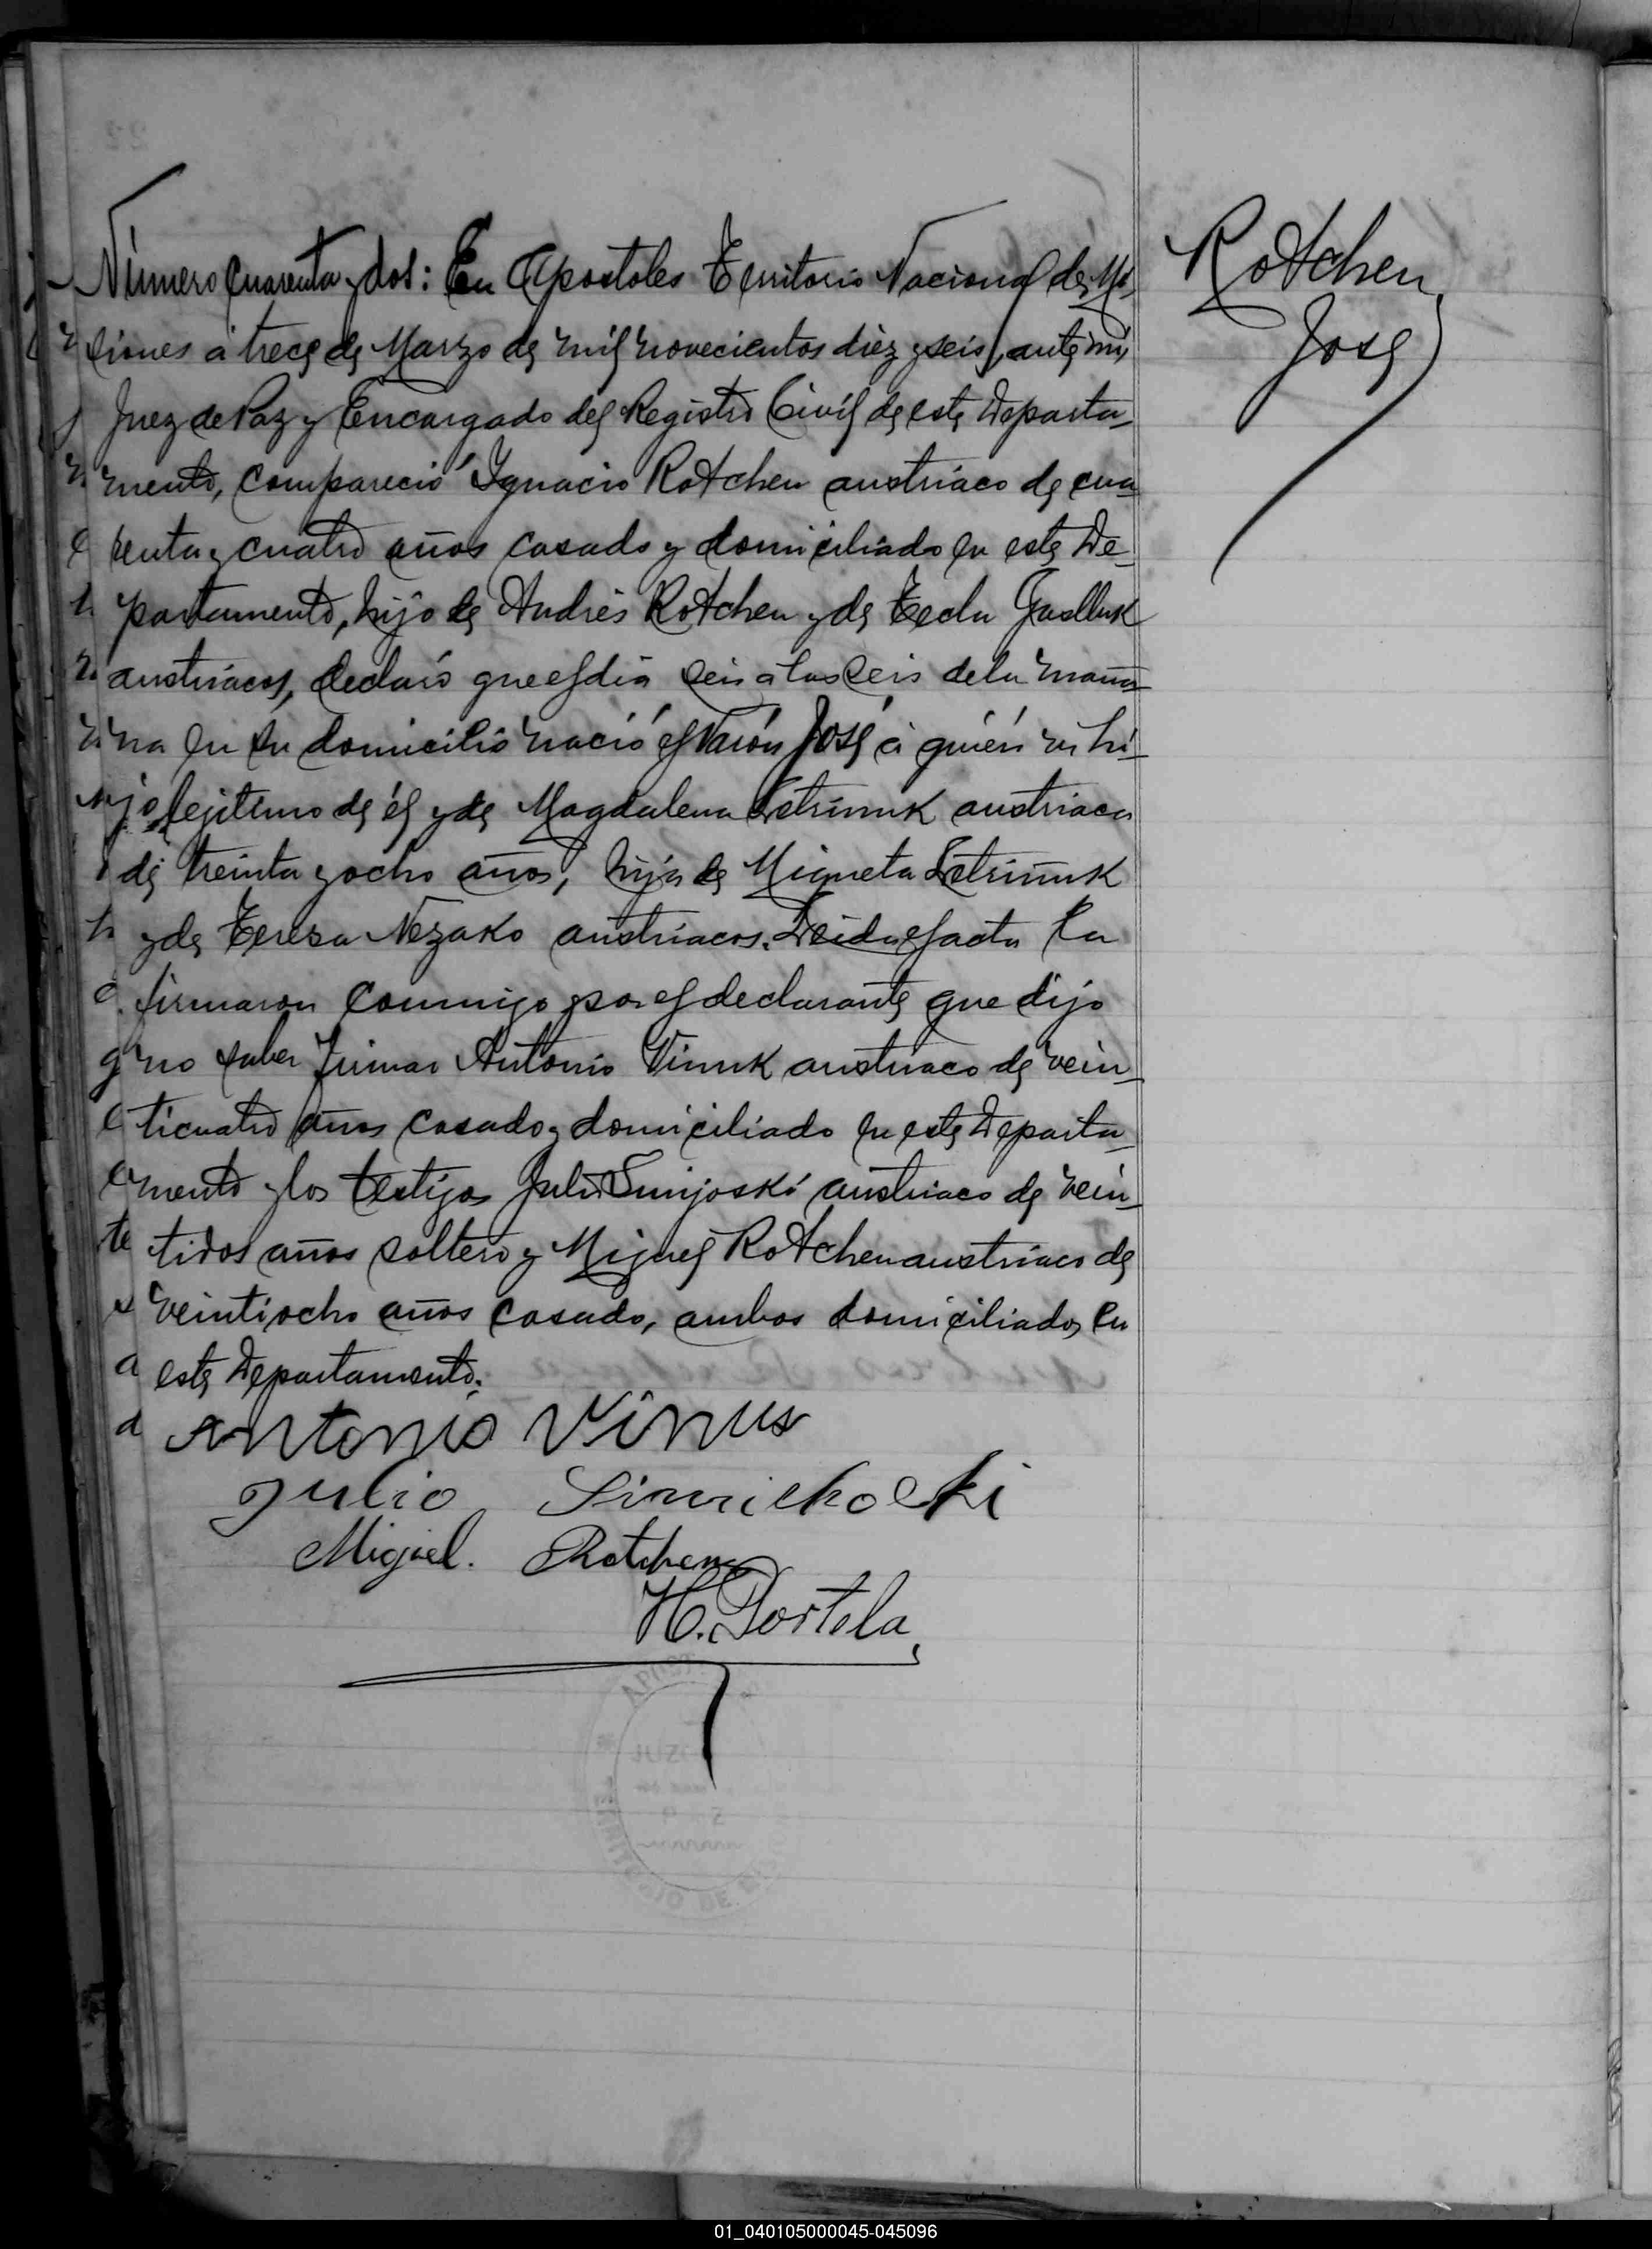 Número Cuarenta y dos: En Apostoles Territorio Nacional de Mi-
siones á trece de Marzo de mil novecientos diez y seis, ante mi,
Juez de Paz y Encargado del Registro Civil de este Departa-
mento, compareció Ignacio Rotchen austriaco de cua-
renta y cuatro años casado y domiciliado en este De-
partamento, hijo de Andrés Rotchen y de Tecla
austriacos, declaró que el día seis a las seis de la maña-
na en su domicilio nació el varón José á quién hi-
jo legitimo de él y de Magdalena Letriñuk austriaca
de treinta y ocho años, hija de Migueta Letriñuk
y de Teresa Nezako austriacos. Leida el acta la
firmaron conmigo por el declarante que dijo
no saber firmar Antonio Vinuk austriaco de vein-
ticuatro años casado y domiciliado en este Departa-
mento y los testigos Julio Simijoski austriaco de vein-
tidos años soltero y Miguel Rotchen austriaco de
veintiocho años casado, ambos domiciliados en
este Departamento.
Antonio Vinus
Julio Simichoski
Miguel. Rotchen
H. Portela
Rotchen,
José
01_040105000045-045096